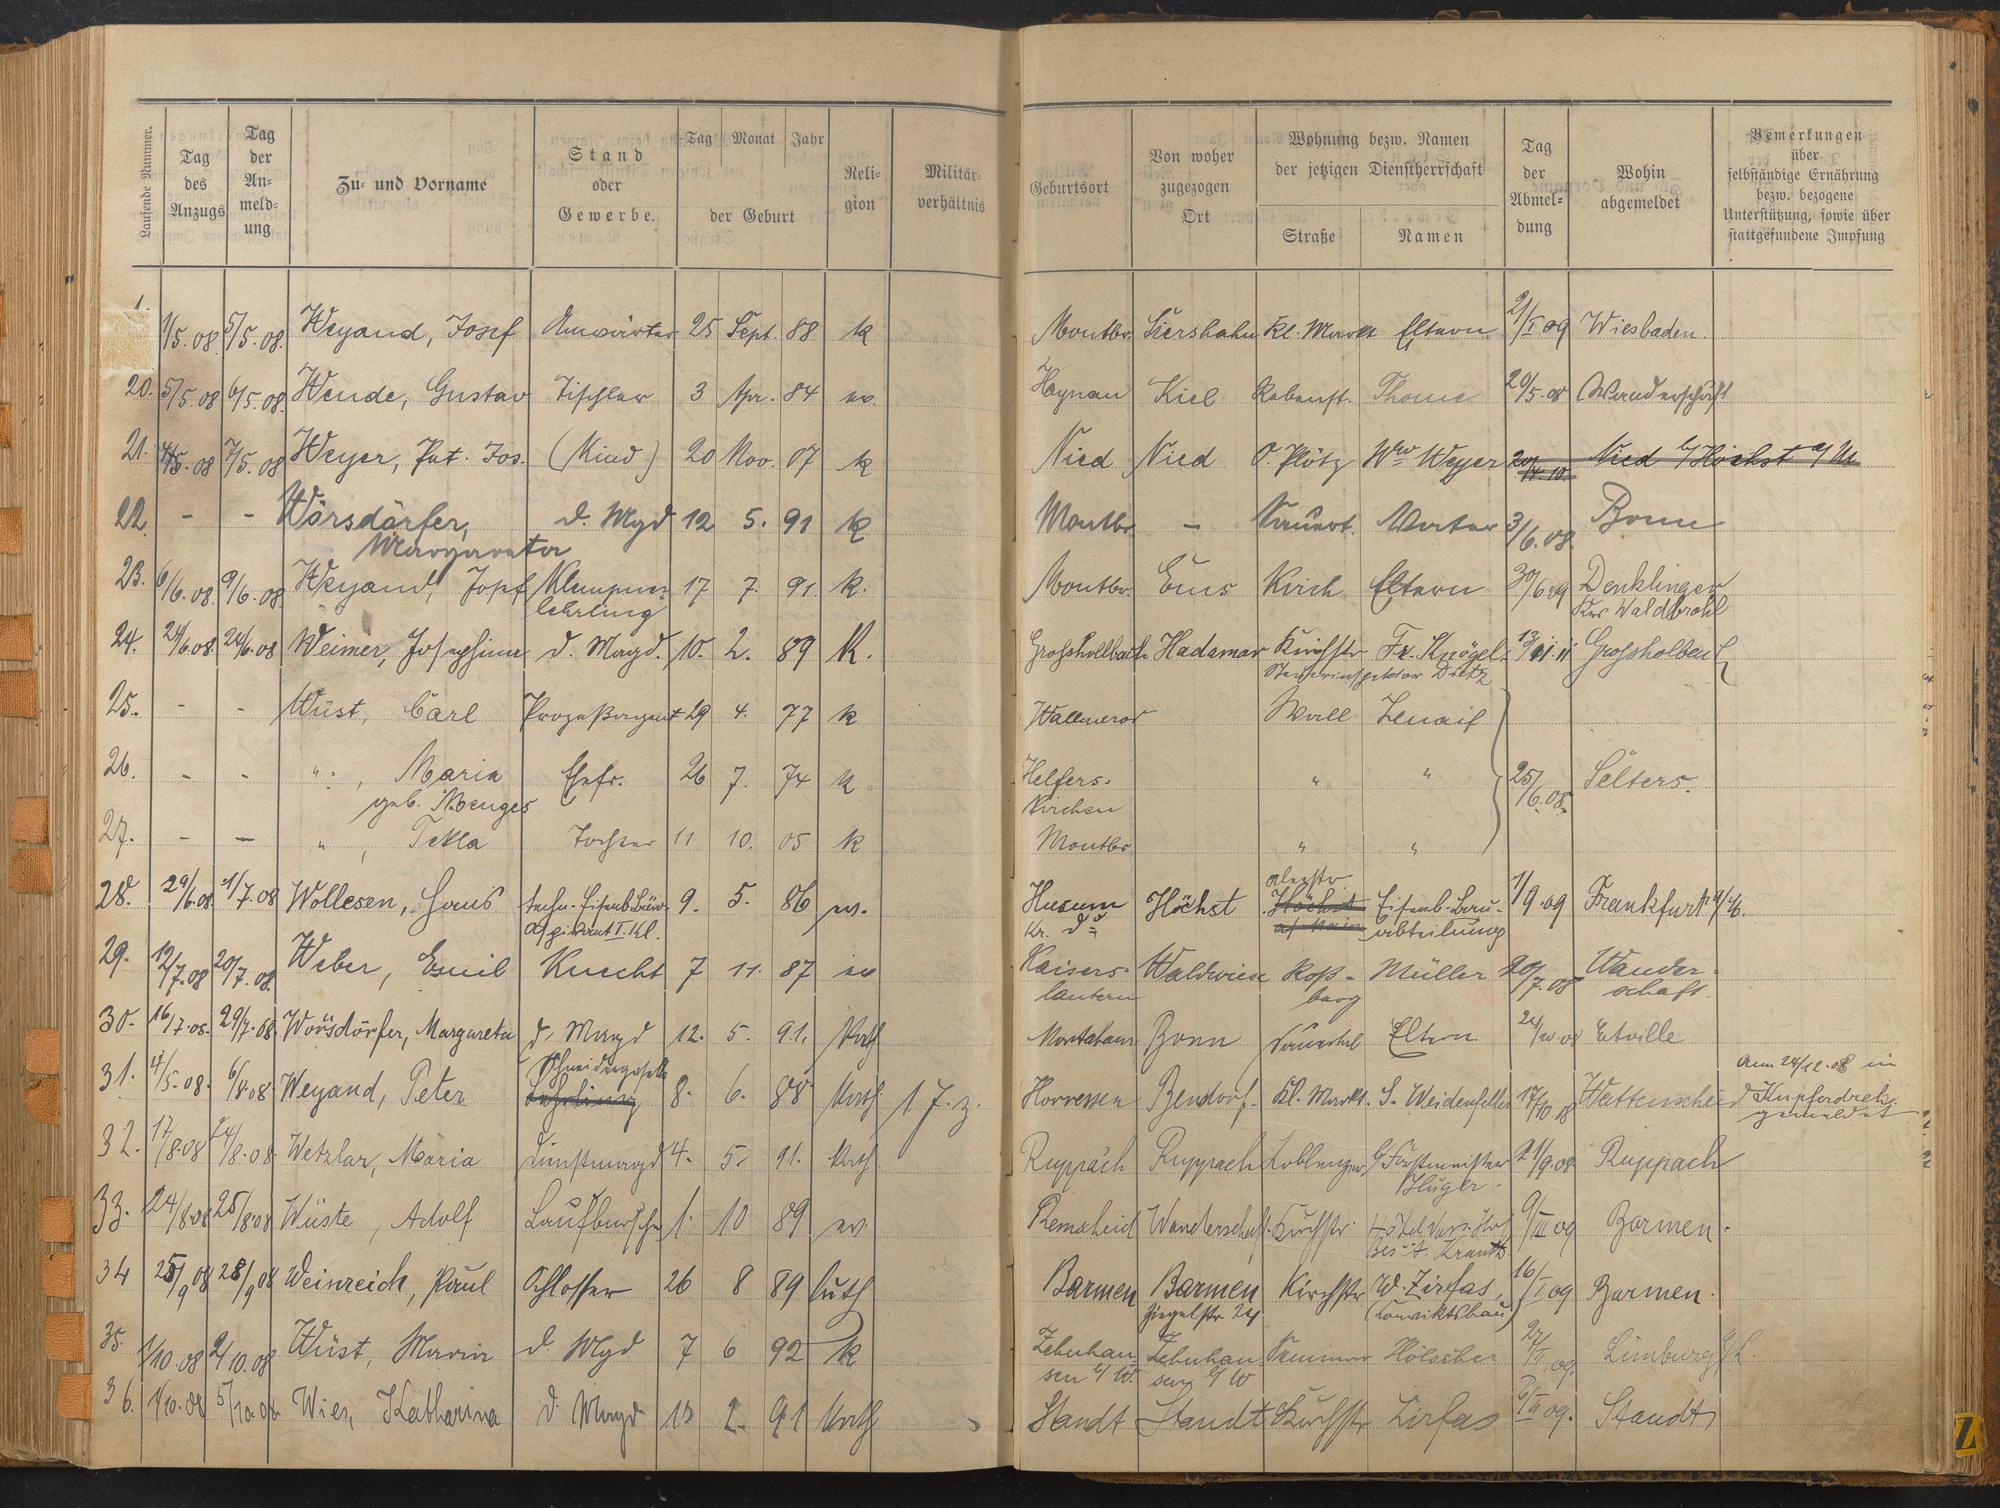 Laufende Nummer. Tag des Anzugs Tag der Anmeldung Zu- und Vorname Stand oder Gewerbe. Tag Monat Jahr der Geburt Religion Militärverhältnis Geburtsort Von woher zugezogen Ort Wohnung bezw. Namen der jetzigen Dienstherrschaft Straße Namen Tag der Abmeldung Wohin abgemeldet Bemerkungen über selbständige Ernährung bezw. bezogene Unterstützung, sowie über stattgefundene Impfung
1/5.08 5/5.08. Weyand, Josef Anwärter 25 Sept. 88 k Montbr. Siershahn Kl. Markt Eltern 2/I 09 Wiesbaden.
20. 5/5.08 6/5.08. Wende, Gustav Tischler 3 Apr. 84 ev. Haynau Kiel Rebenst. Thome 20/5.08 Wanderschaft
21. 4/5.08 7/5.08 Weyer, Pet. Jos. (Kind) 20 Nov. 07 k Nied Nied O. Plötz Wwe Weyer Nied b/Höchst a/M
22. - - Wörsdörfer, Margareta d. Mgd 12 5. 91 k Montbr - Sauert. Vater 3/6.08. Bonn
23. 6/6.08. 9/6.08. Weyand, Josef Klempnerlehrling 17 7. 91. k. Montbr. Ems Kirch Eltern 30/6 09 Denklingen Krs Waldbröhl
24. 24/6.08. 24/6.08 Weimer, Josephine d. Magd. 10. 2. 89 K. Grosshollbach Hadamar Kirchstr Fr. Knögel Steuerinspektor Dietz 13/11.11 Grossholbach
25. - - Wüst, Carl Prozeßagent 29 4. 77 k Wallmerod Wall Zenaif
26. - - " , Maria geb. Menges Ehefr. 26 7. 74 k Helferskirchen " " 25/6.08. Selters.
27. - - " , Tekla Tochter 11 10. 05 k Montbr " "
28. 29/6.08 1/7.08 Wollesen, Hans techn. Eisenb. Büro aspirant II. Kl. 9. 5. 86 ev. Husum Kr. do Höchst Alexstr. Höchst a/Main Eisenb.-Bauabteilung 1/9.09 Frankfurt a/M.
29. 19/7.08 20/7.08. Weber, Emil Knecht 7 11. 87 ev Kaiserslautern Waldwiese Roßberg Müller 20/7.08 Wanderschaft.
30. 16/7.08. 29/7.08 Wörsdörfer, Margareta d. Magd 12. 5. 91. Kath Montabaur Bonn Sauertal Eltern. Eltville
31. 4/5.08. 6/8.08 Weyand, Peter Schneidergeselle Lehrling 8. 6. 88 Kath. 1 J. z. Horressen Bendorf. Kl. Markt. S. Weidenfeller 17/10 08 Wattenscheid Am 24/12.08 in Kupferdreh gemeldet
32. 17/8.08 24/8.08. Wetzlar, Maria Dienstmagd 4. 5. 91. Kath. Ruppach Ruppach Koblenzer b/ Forstmeister Kluger. 21/9.08. Ruppach
33. 24/8.08 25/8.08 Wüste, Adolf Laufbursche 1. 10 89 ev. Remscheid Wanderschaft. Kirchstr. Bes. A. Krauth 9/III 09 Barmen.
34 25/9 08 28/9 08 Weinreich, Paul Schlosser 26 8 89 luth Barmen Barmen Ziegelstr 24 Kirchstr W. Zirfas, (Konviktsbau) 16/I 09 Barmen.
35. 1/10.08 2/10.08 Wüst, Maria d. Mgd 7 6 92 k Zehnhausen b/W. Zehnhausen b/W Seminar Hölscher Limburg a/L.
36. 1/10.08 5/10.08. Wies, Katharina d. Magd 2. 91 Kath Standt Standt Kirchstr Zirfas Standt
Z